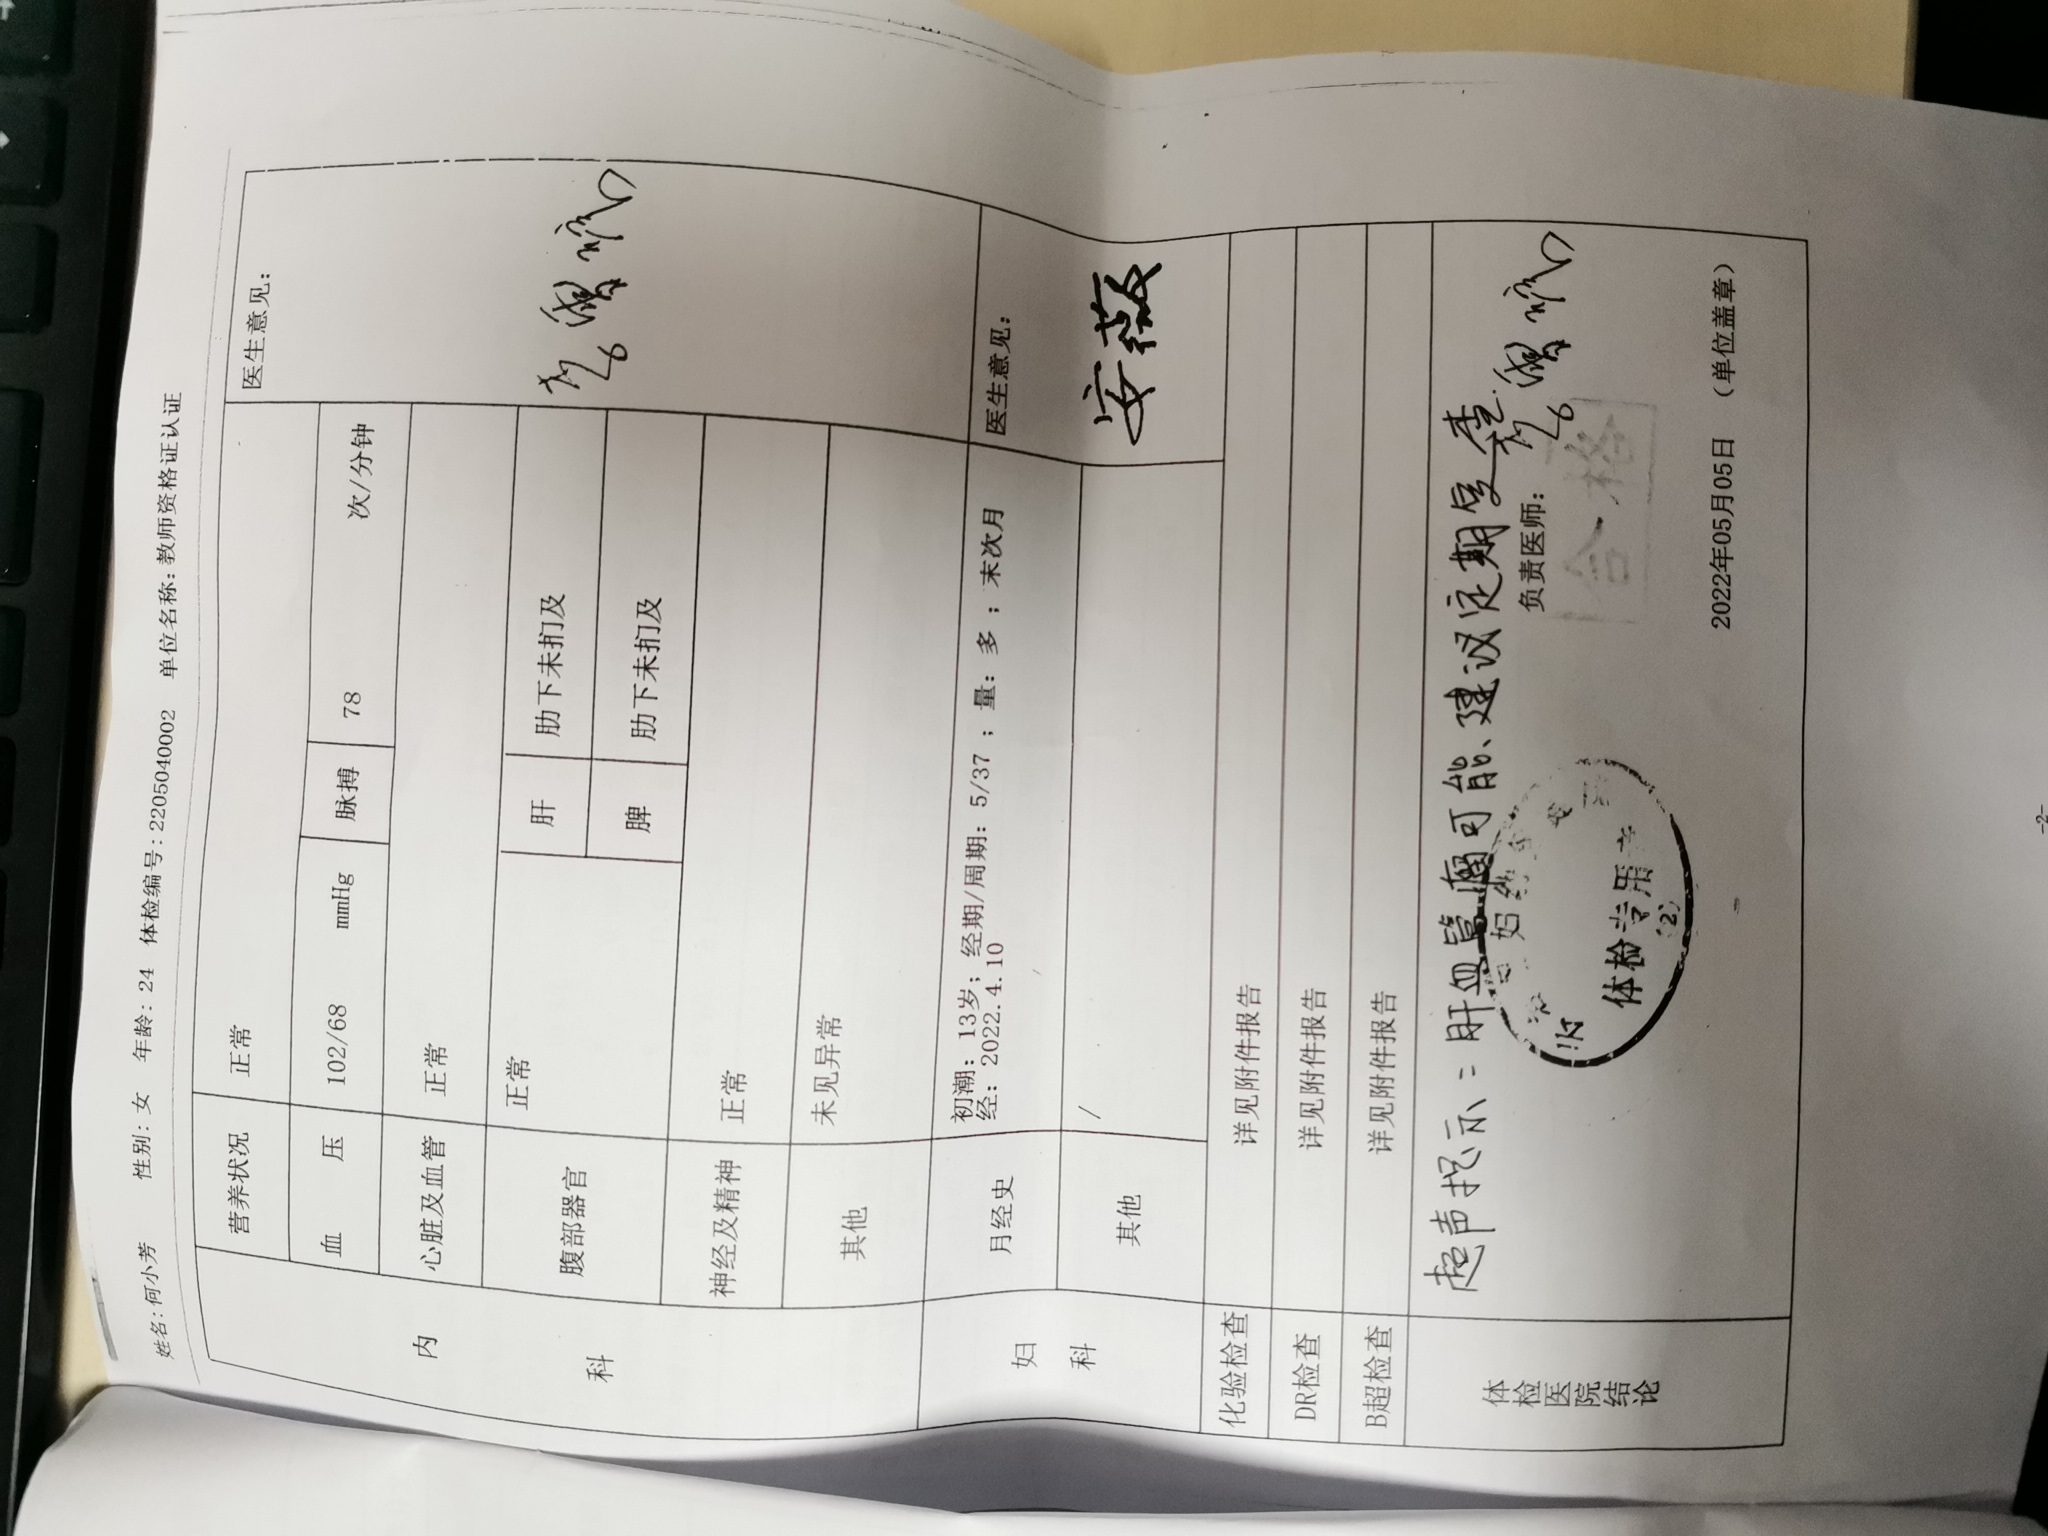 姓名:何小芳 性别:女 年龄:24 体检编号:2205040002 单位名称:教师资格证认证
内科
营养状况 正常 医生意见:
血压 102/68 mmHg 脉搏 78 次/分钟
心脏及血管 正常
腹部器官 正常 肝 肋下未扪及
脾 肋下未扪及
神经及精神 正常
其他 未见异常
妇科
月经史 初潮: 13岁; 经期/周期: 5/37 ; 量: 多 ; 末次月
经: 2022.4.10
医生意见:
安薇
其他 /
化验检查 详见附件报告
DR检查 详见附件报告
B超检查 详见附件报告
体检医院结论
超声提示:肝血管瘤可能、建议定期复查.
负责医师:
合格
体检专用
(2)
2022年05月05日 (单位盖章)
-2-